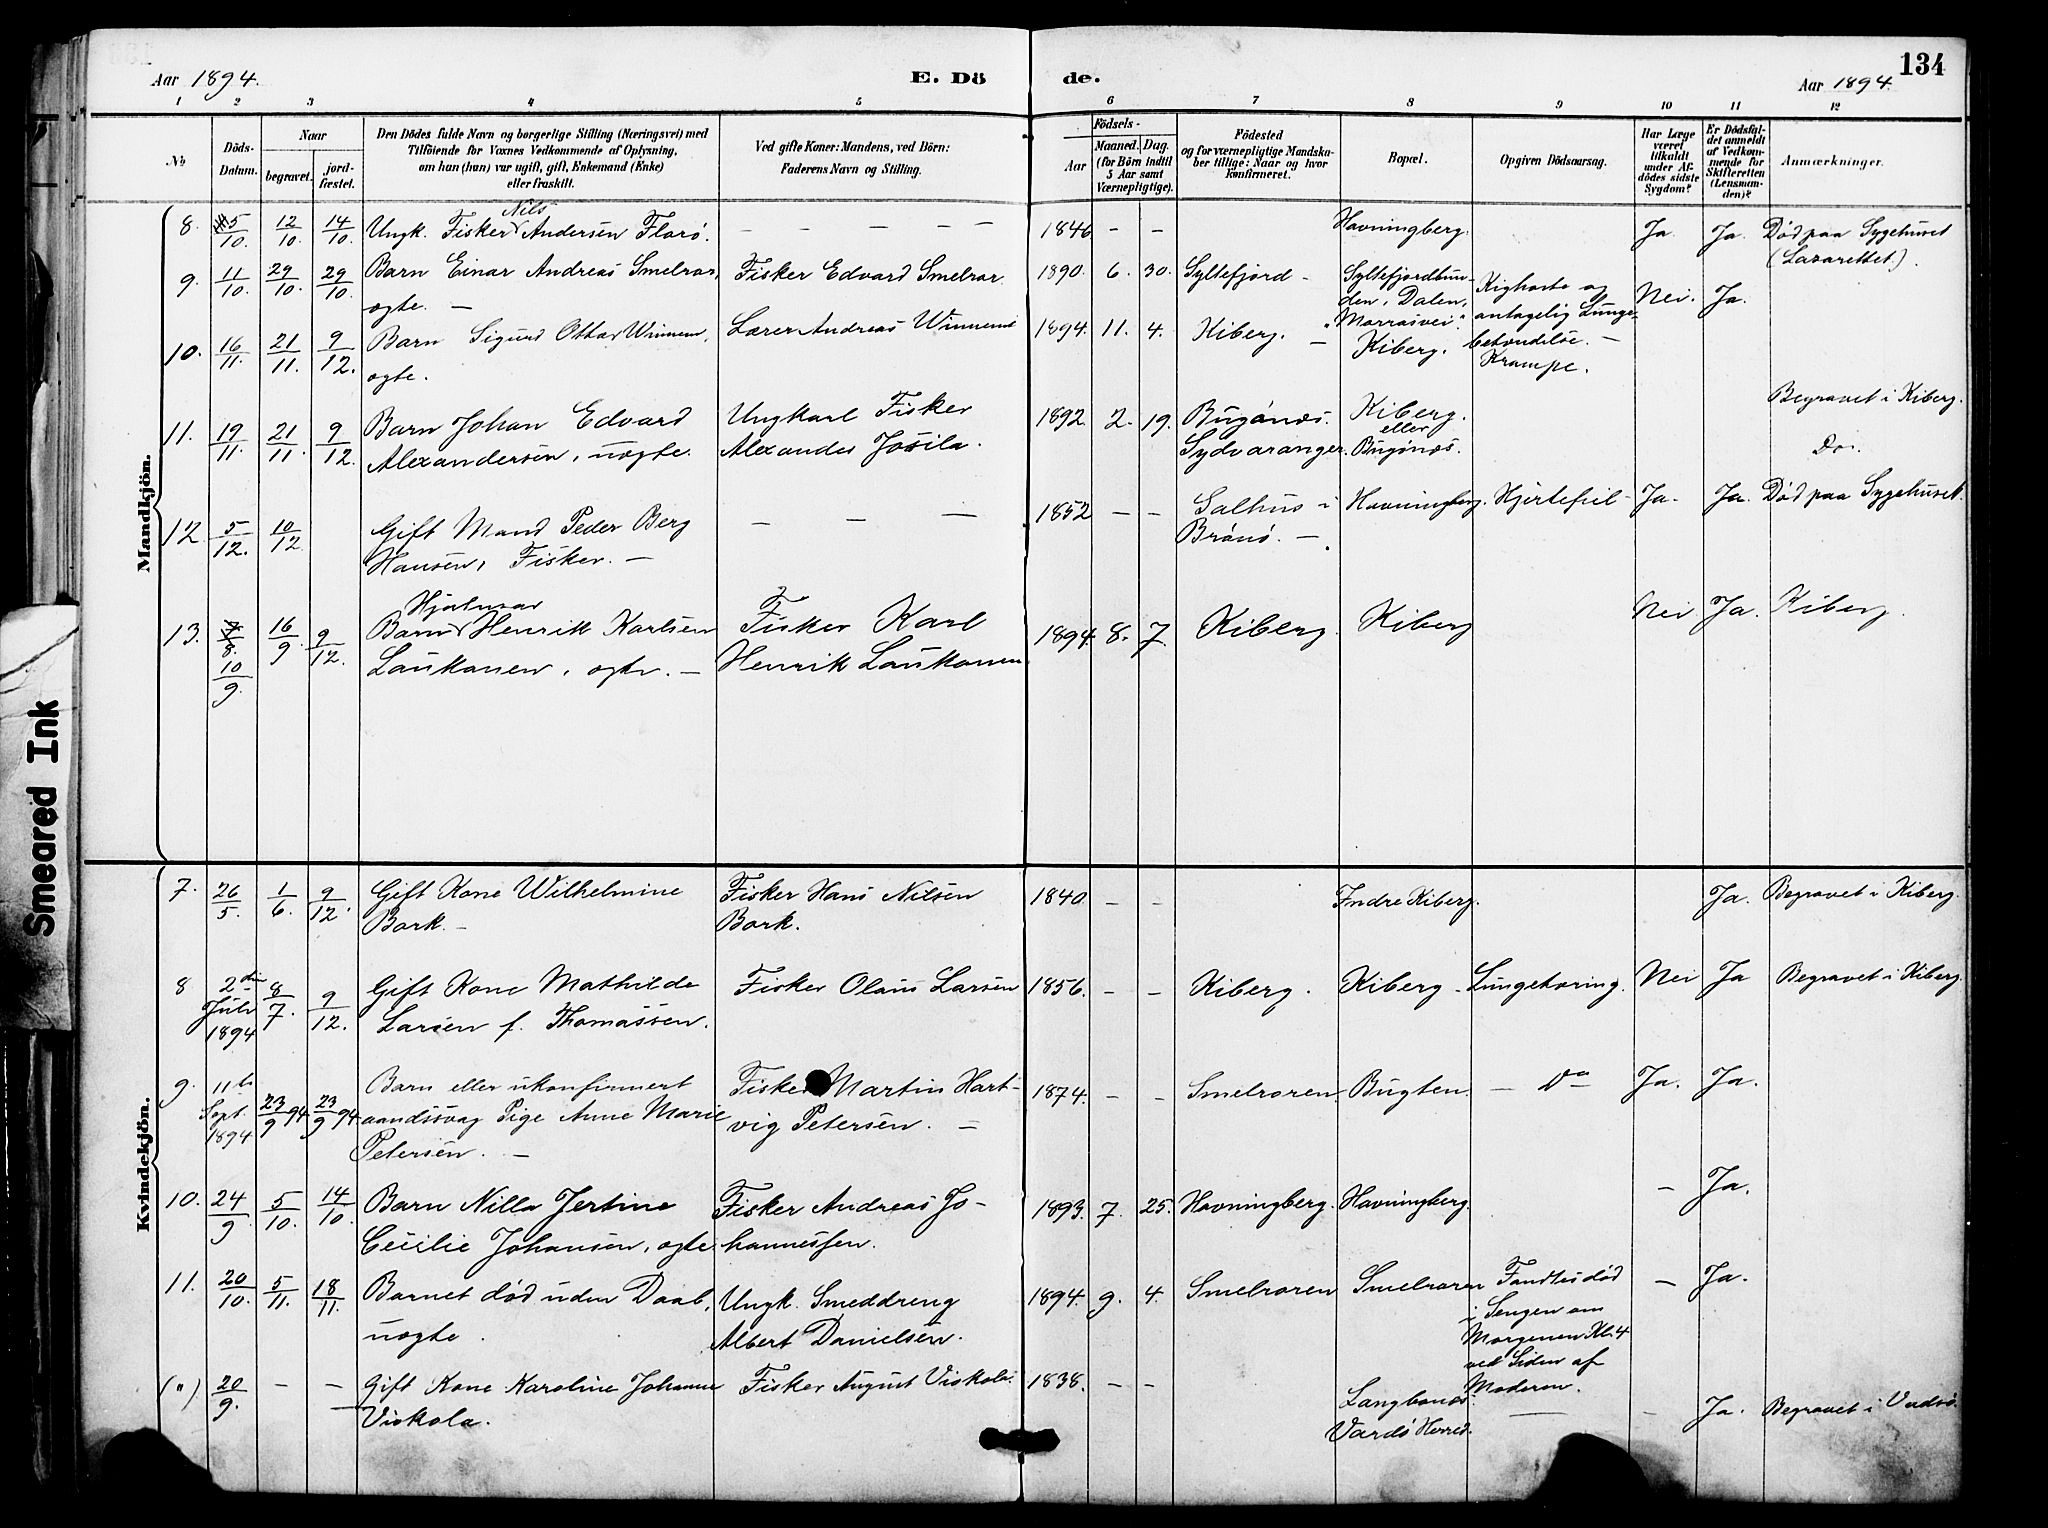 Aar 1894.
E. Dö
de.
Aar 1894.
134
1 2 3 4 5 6 7 8 9 10 11 12
No
Döds-
Datum.
Naar
begravet.
jord-
fæstet.
Den Dödes fulde Navn og borgerlige Stilling (Næringsvei) med
Tilföiende for Voxnes Vedkommende af Oplysning,
om han (hun) var ugift, gift, Enkemand (Enke)
eller fraskilt.
Ved gifte Koner: Mandens, ved Börn:
Faderens Navn og Stilling.
Födsels-
Aar
Maaned. Dag.
(for Börn indtil
5 Aar samt
Værnepligtige).
Födested
og for værnepligtige Mandska-
ber tillige: Naar og hvor
konfirmeret.
Bopæl.
Opgiven Dödsaarsag.
Har Læge
været
tilkaldt
under Af-
dödes sidste
Sygdom?
Er Dödsfal-
det anmeldt
af Vedkom-
mende for
Skifteretten
(Lensman-
den)?
Anmærkninger.
Mandkjön.
8. 5/10. 12/10. 14/10. Ungk. Fisker Nils Andersen Florö. – – – – – 1846 – – Havningberg. Ja. Ja. Död paa Sygehuset
(Lazarettet.).
9. 11/10. 29/10. 29/10. Barn Einar Andreas Smelror, Fisker Edvard Smelror 1890. 6. 30. Syltefjord – Syltefjordbun-
ægte. –
den, Dalen,
"Marrasvei".
Kighoste og
antagelig Lunge-
betændelse. –
Nei. Ja.
10. 16/11. 21/11. 9/12. Barn Sigurd Ottar Winnem, Lærer Andreas Winnem 1894. 11. 4. Kiberg. – Kiberg. Krampe.
ægte.
Begravet i Kiberg.
11. 19/11. 21/11. 9/12. Barn Johan Edvard Ungkarl Fisker 1892. 2. 19. Bugönæs. Kiberg.
Alexandersen, uægte. Alexander Josila. Sydvaranger. eller
Bugönæs.
Do.
12 5/12. 10/12 Gift Mand Peder Berg – – – 1852 – – Salhus i Havningberg. Hjertefeil – Ja. Ja. Död paa Sygehuset.
Hansen, Fisker. – Brönö. –
13. 7/8. 10/9. 16/9. 9/12. Barn Hjalmar Henrik Karlsen Fisker Karl 1894. 8. 7. Kiberg. Kiberg Nei Ja. Kiberg.
Laukanen, ægte. – Henrik Laukanen
Kvindekjön.
7. 26/5. 1/6. 9/12. Gift Kone Wilhelmine Fisker Hans Nilsen 1840. – – Indre Kiberg. Ja. Begravet i Kiberg.
Bork. – Bork.
8 2den
Juli
1894
8/7. 9/12. Gift Kone Mathilde Fisker Olaus Larsen 1856. – – Kiberg. Kiberg – Lungetæring. Nei Ja Begravet i Kiberg.
Larsen f. Thomassen.
9. 11te
Sept.
1894
23/9 94 23/9 94 Barn eller ukonfirmert Fisker Martin Hart- 1874. – – Smelroren. Bugten. – Do Ja. Ja.
aandssvag Pige Anne Marie vig Petersen. –
Petersen. –
10. 24/9. 5/10. 14/10. Barn Nilla Jertine Fisker Andreas Jo- 1893. 7. 25. Havningberg. Havningberg. – Ja.
Cecilie Johansen, ægte hannessen.
11. 20/10. 5/11. 18/11. Barnet död uden Daab, Ungk. Smeddreng 1894. 9. 4. Smelroren Smelroren Fandtes död – Ja.
uægte. Albert Danielsen.
i Sengen om
Morgenen Kl. 4
ved Siden af
Moderen.
(") 20/9. – – Gift Kone Karoline Johanne Fisker August Viskola. 1838. – – Langbonæs. – – Ja. Begravet i Vadsö.
Viskola. Vardö Herred.
Smeared Ink